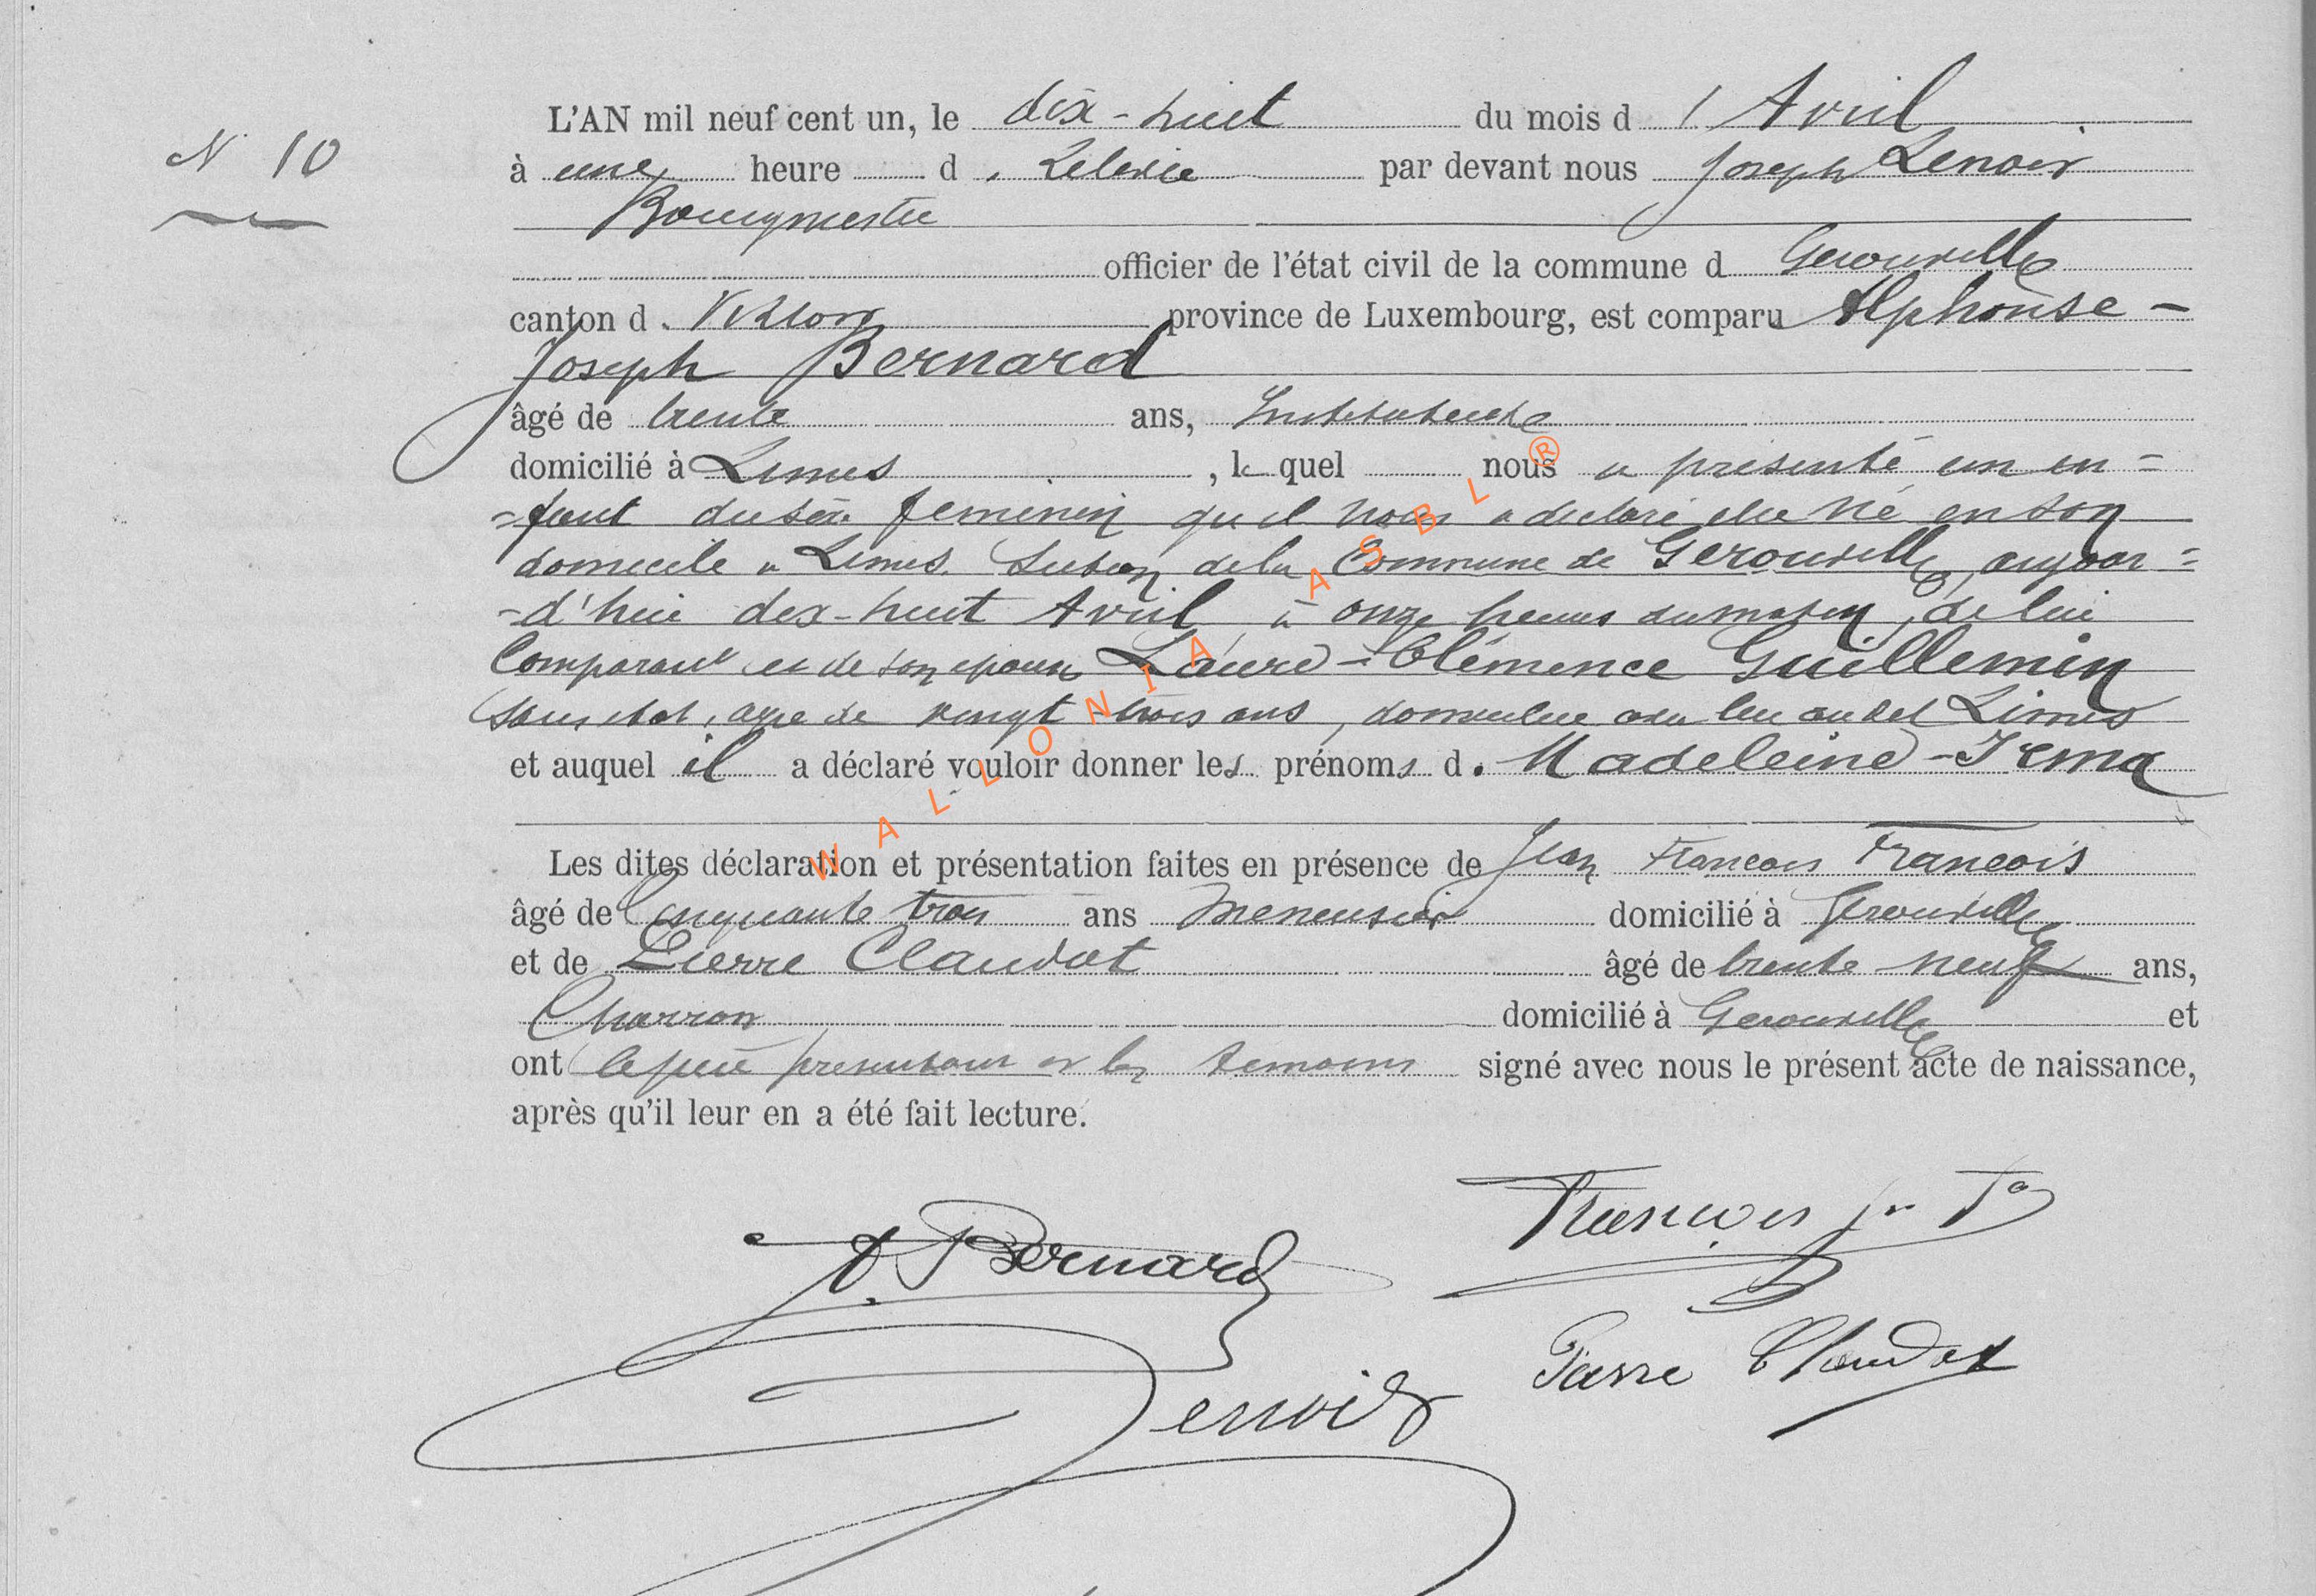 N 10
L'AN mil neuf cent un, le dix-huit du mois d'Avril
à une heure d. Relevée par devant nous Joseph Lenoir
Bourgmestre
officier de l'état civil de la commune d Gerouville
canton d. Virton province de Luxembourg, est comparu Alphonse-
Joseph Bernard
âgé de trente ans, Instituteur
domicilié à Limes, le quel nous a présenté un en=
=fant du sexe feminin qu'il nous a déclaré être né en son
domicile à Limes. Section de la Commune de Gerouville, aujour=
-d'hui dix-huit Avril, à onze heures du matin, de lui
Comparant et de son épouse Laure-Clémence Guillemin
sans état, agée de vingt-trois ans, domiciliée au dit Limes
et auquel il a déclaré vouloir donner les prénoms d. Madeleine-Irma
Les dites déclaration et présentation faites en présence de Jean François François
âgé de Cinquante trois ans menuisier domicilié à Gerouville
et de Pierre Claudot âgé de trente-neuf ans,
Charron domicilié à Gerouville et
ont le père et les témoins signé avec nous le présent acte de naissance,
après qu'il leur en a été fait lecture.
A. Bernard
François Jn Fs
Pierre Claudot
Lenoir
WALLONIA ASBL ®